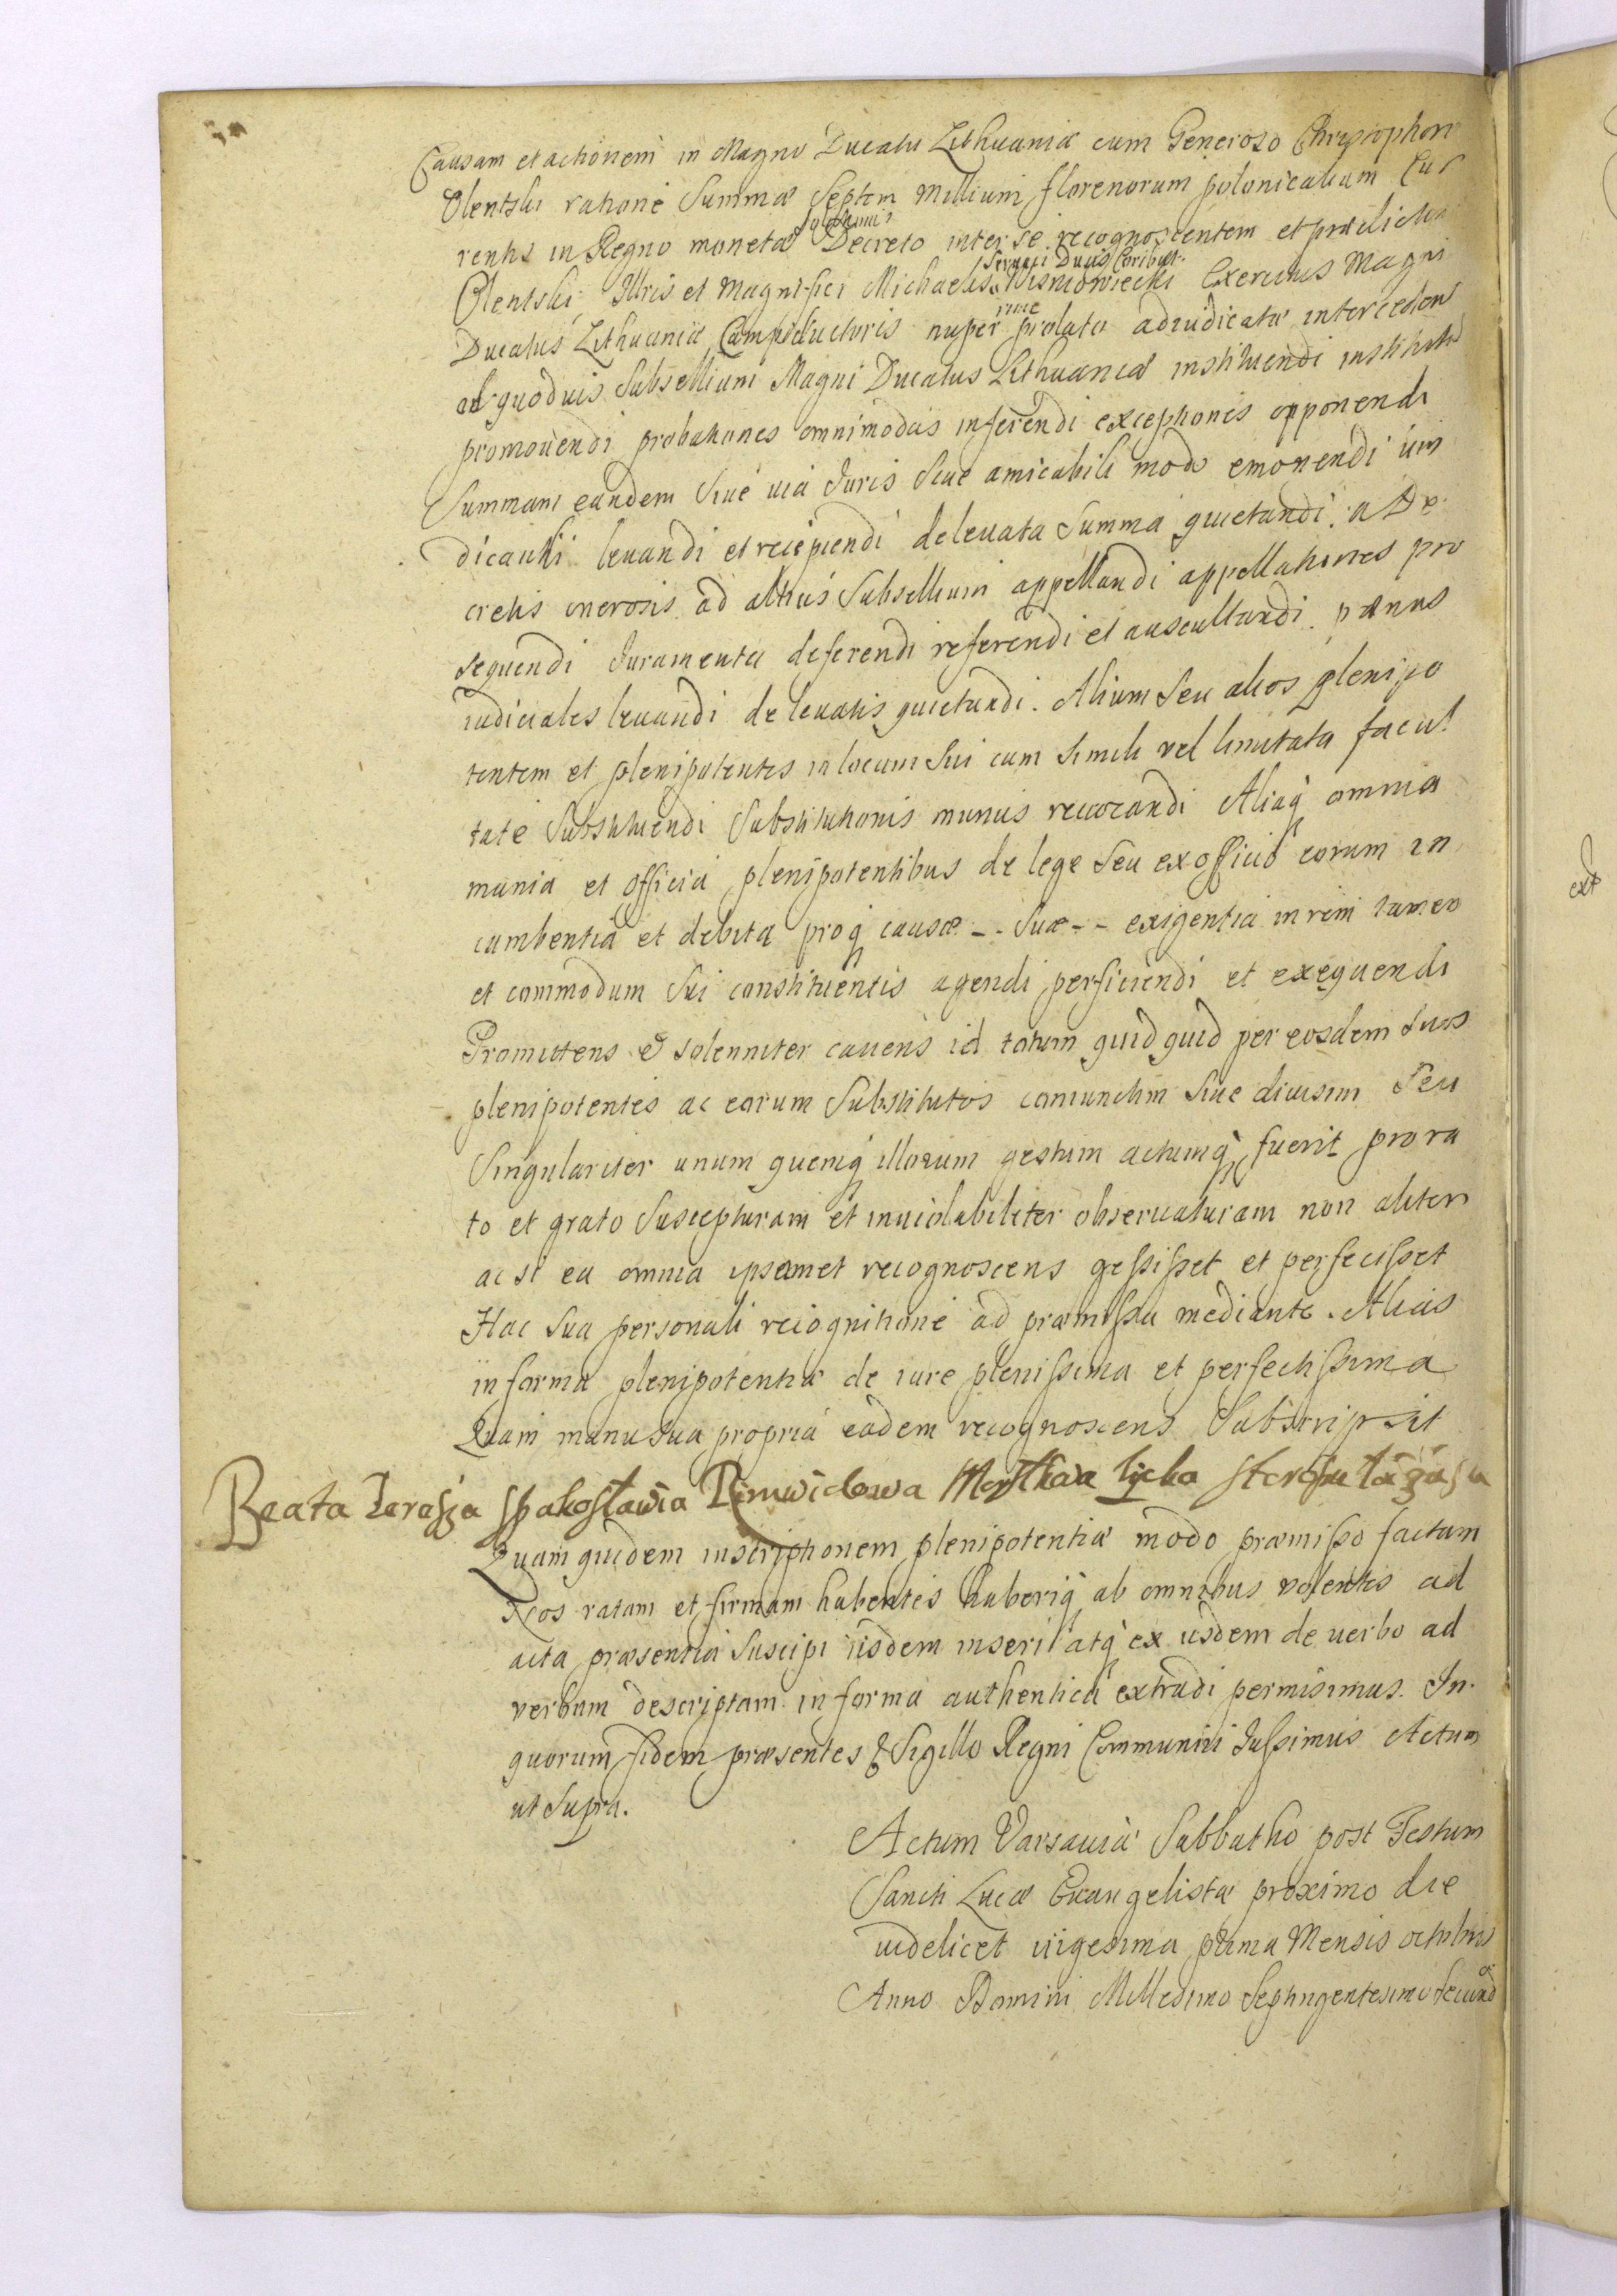 Causam et actionem in Magno Ducatu Lithuaniæ cum Generoso Christophoro
Olentski ratione Summæ Septem Millium florenorum polonicalium Cur
rentis in Regno monetæ Decreto inter se recognoscentem et prædictum
Serenni Ducis Coribut
Olentski, Illris et Magnifici Michaelis Wisniowiecki Exercitus Magni
rime
Ducatus Lithuaniæ Campiductoris nuper prolato adiudicatæ intercedent
ad quoduis Subsellium Magni Ducatus Lithuaniæ instituendi institutas
promouendi probationes omnimodas inferendi exceptiones opponendi
Summam eandem Siue via Juris Siue amicabili modo emonendi uin
dicandi leuandi et recipiendi de leuata Summa quietandi. a De
cretis onerosis ad altius Subsellium appellandi appellationes pro
sequendi Juramenta deferendi referendi et auscultandi. pænas
iudiciales leuandi de leuatis quietandi. Alium Seu alios plenipo
tentem et plenipotentes in locum Sui cum Simili vel limitata facul
tate Substituendi Substitutionis munus reuocandi Aliaq omnia
munia et officia plenipotentibus de lege Seu ex officio eorum in
cumbentia et debita proq causæ -- Suæ -- exigentia in rem tamen
et commodum Sui constituentis agendi perficiendi et exequendi
Promittens & solenniter cauens id totum quidquid per eosdem Suos
plenipotentes ac eorum Substitutos coniunctim Siue diuisim Seu
Singulariter unum quemq illorum gestum actumq fuerit pro ra
to et grato Suscepturam et inuiolabiliter obseruaturam non aliter
ac si ea omnia ipsamet recognoscens gessisset et perfecisset
Hac Sua personali recognitione ad præmissa mediante. Alias
in forma plenipotentiæ de iure plenissima et perfectissima
Quam manu Sua propria eadem recognoscens Subscripsit
Beata
Quam quidem inscriptionem plenipotentiæ modo præmisso factam
Nos ratam et firmam habentes haberiq ab omnibus volentes ad
acta præsentia Suscipi iisdem inseri atq ex iisdem de uerbo ad
verbum descriptam in forma authentica extradi permisimus. In
quorum fidem præsentes Sigillo Regni Communiri Jussimus Actum
ut Supra.
Actum Varsauiæ Sabbatho post Festum
Sancti Lucæ Euangelistæ proximo die
uidelicet uigesima prima Mensis octobris
Anno Domini Millesimo Septingentesimo Secundo